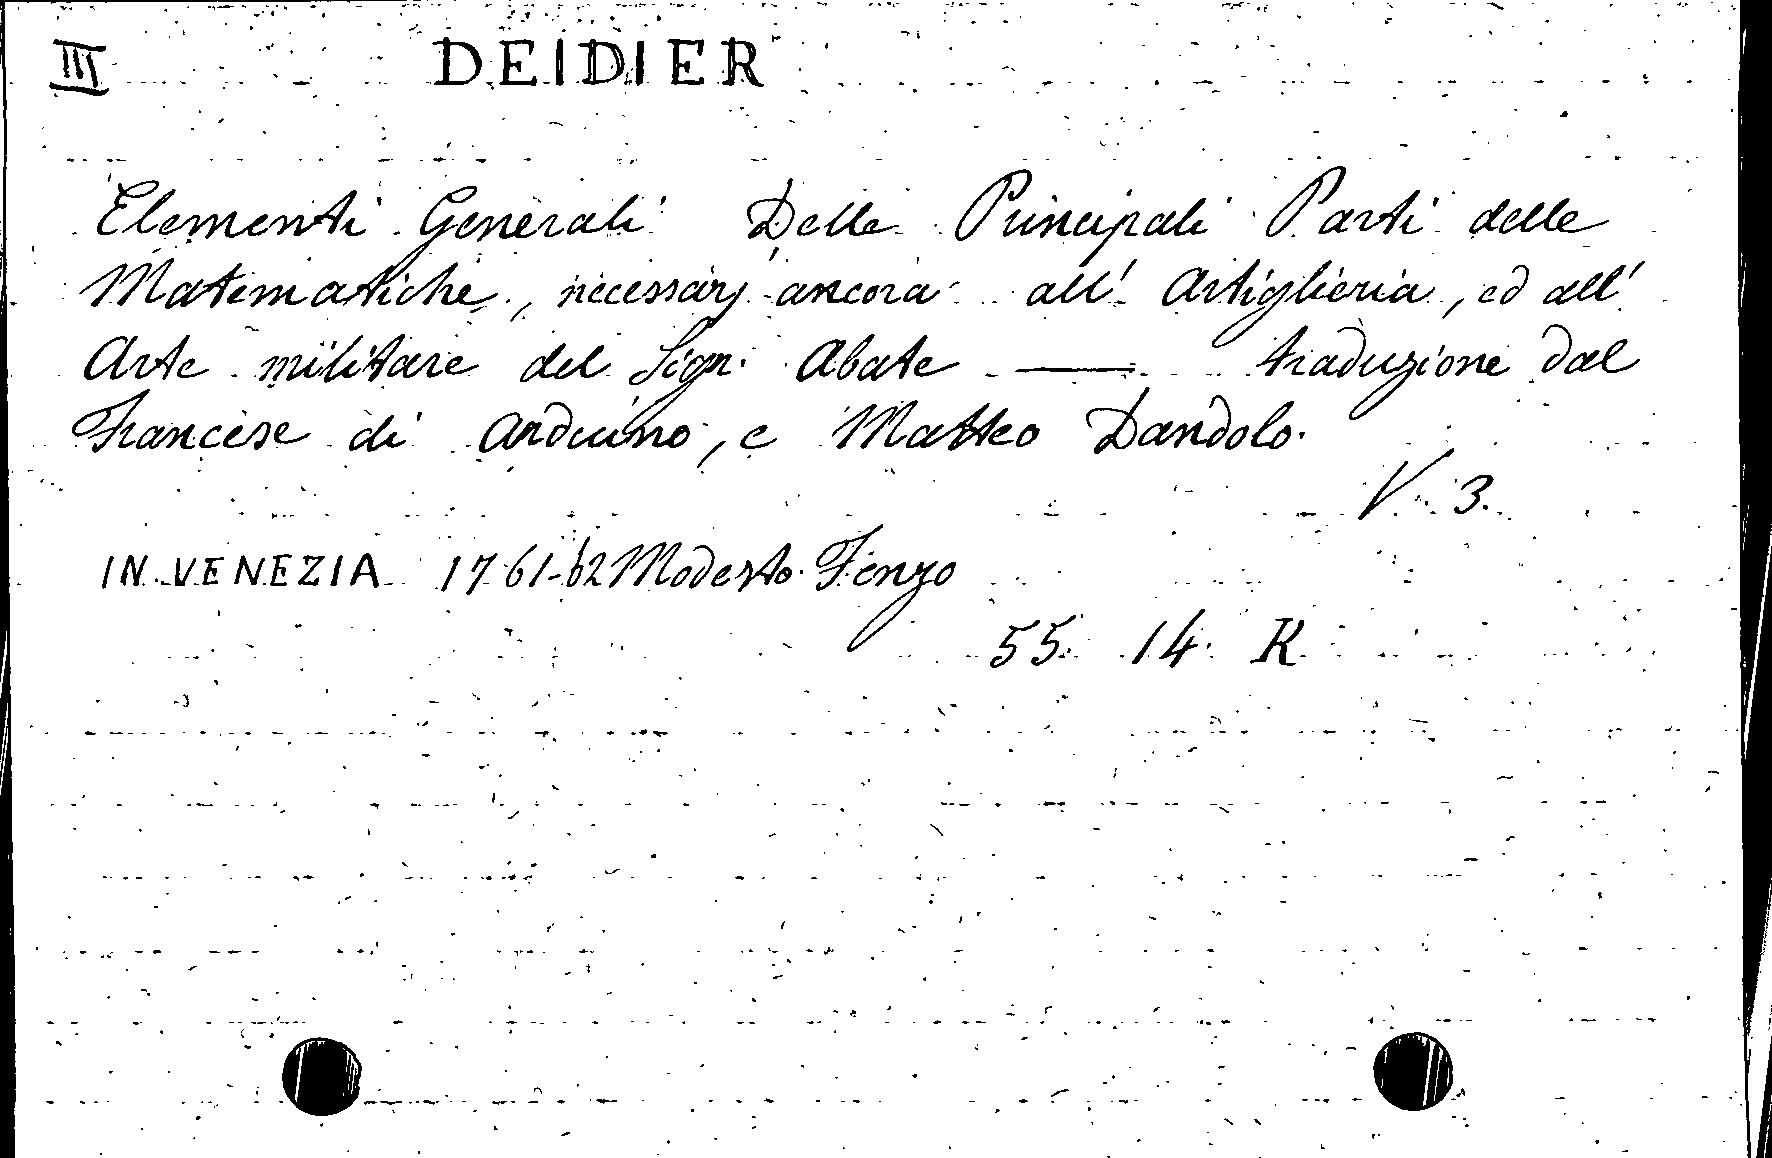 III DEIDIER
Elementi Generali Delle Principali Parti delle
Matematiche, necessarj ancora all' Artiglieria, ed all'
Arte militare del Sigr. Abate —— traduzione dal
Francese di Arduino, e Matteo Dandolo.
V. 3.
IN VENEZIA 1761-62 Modesto Fenzo
55. 14. K